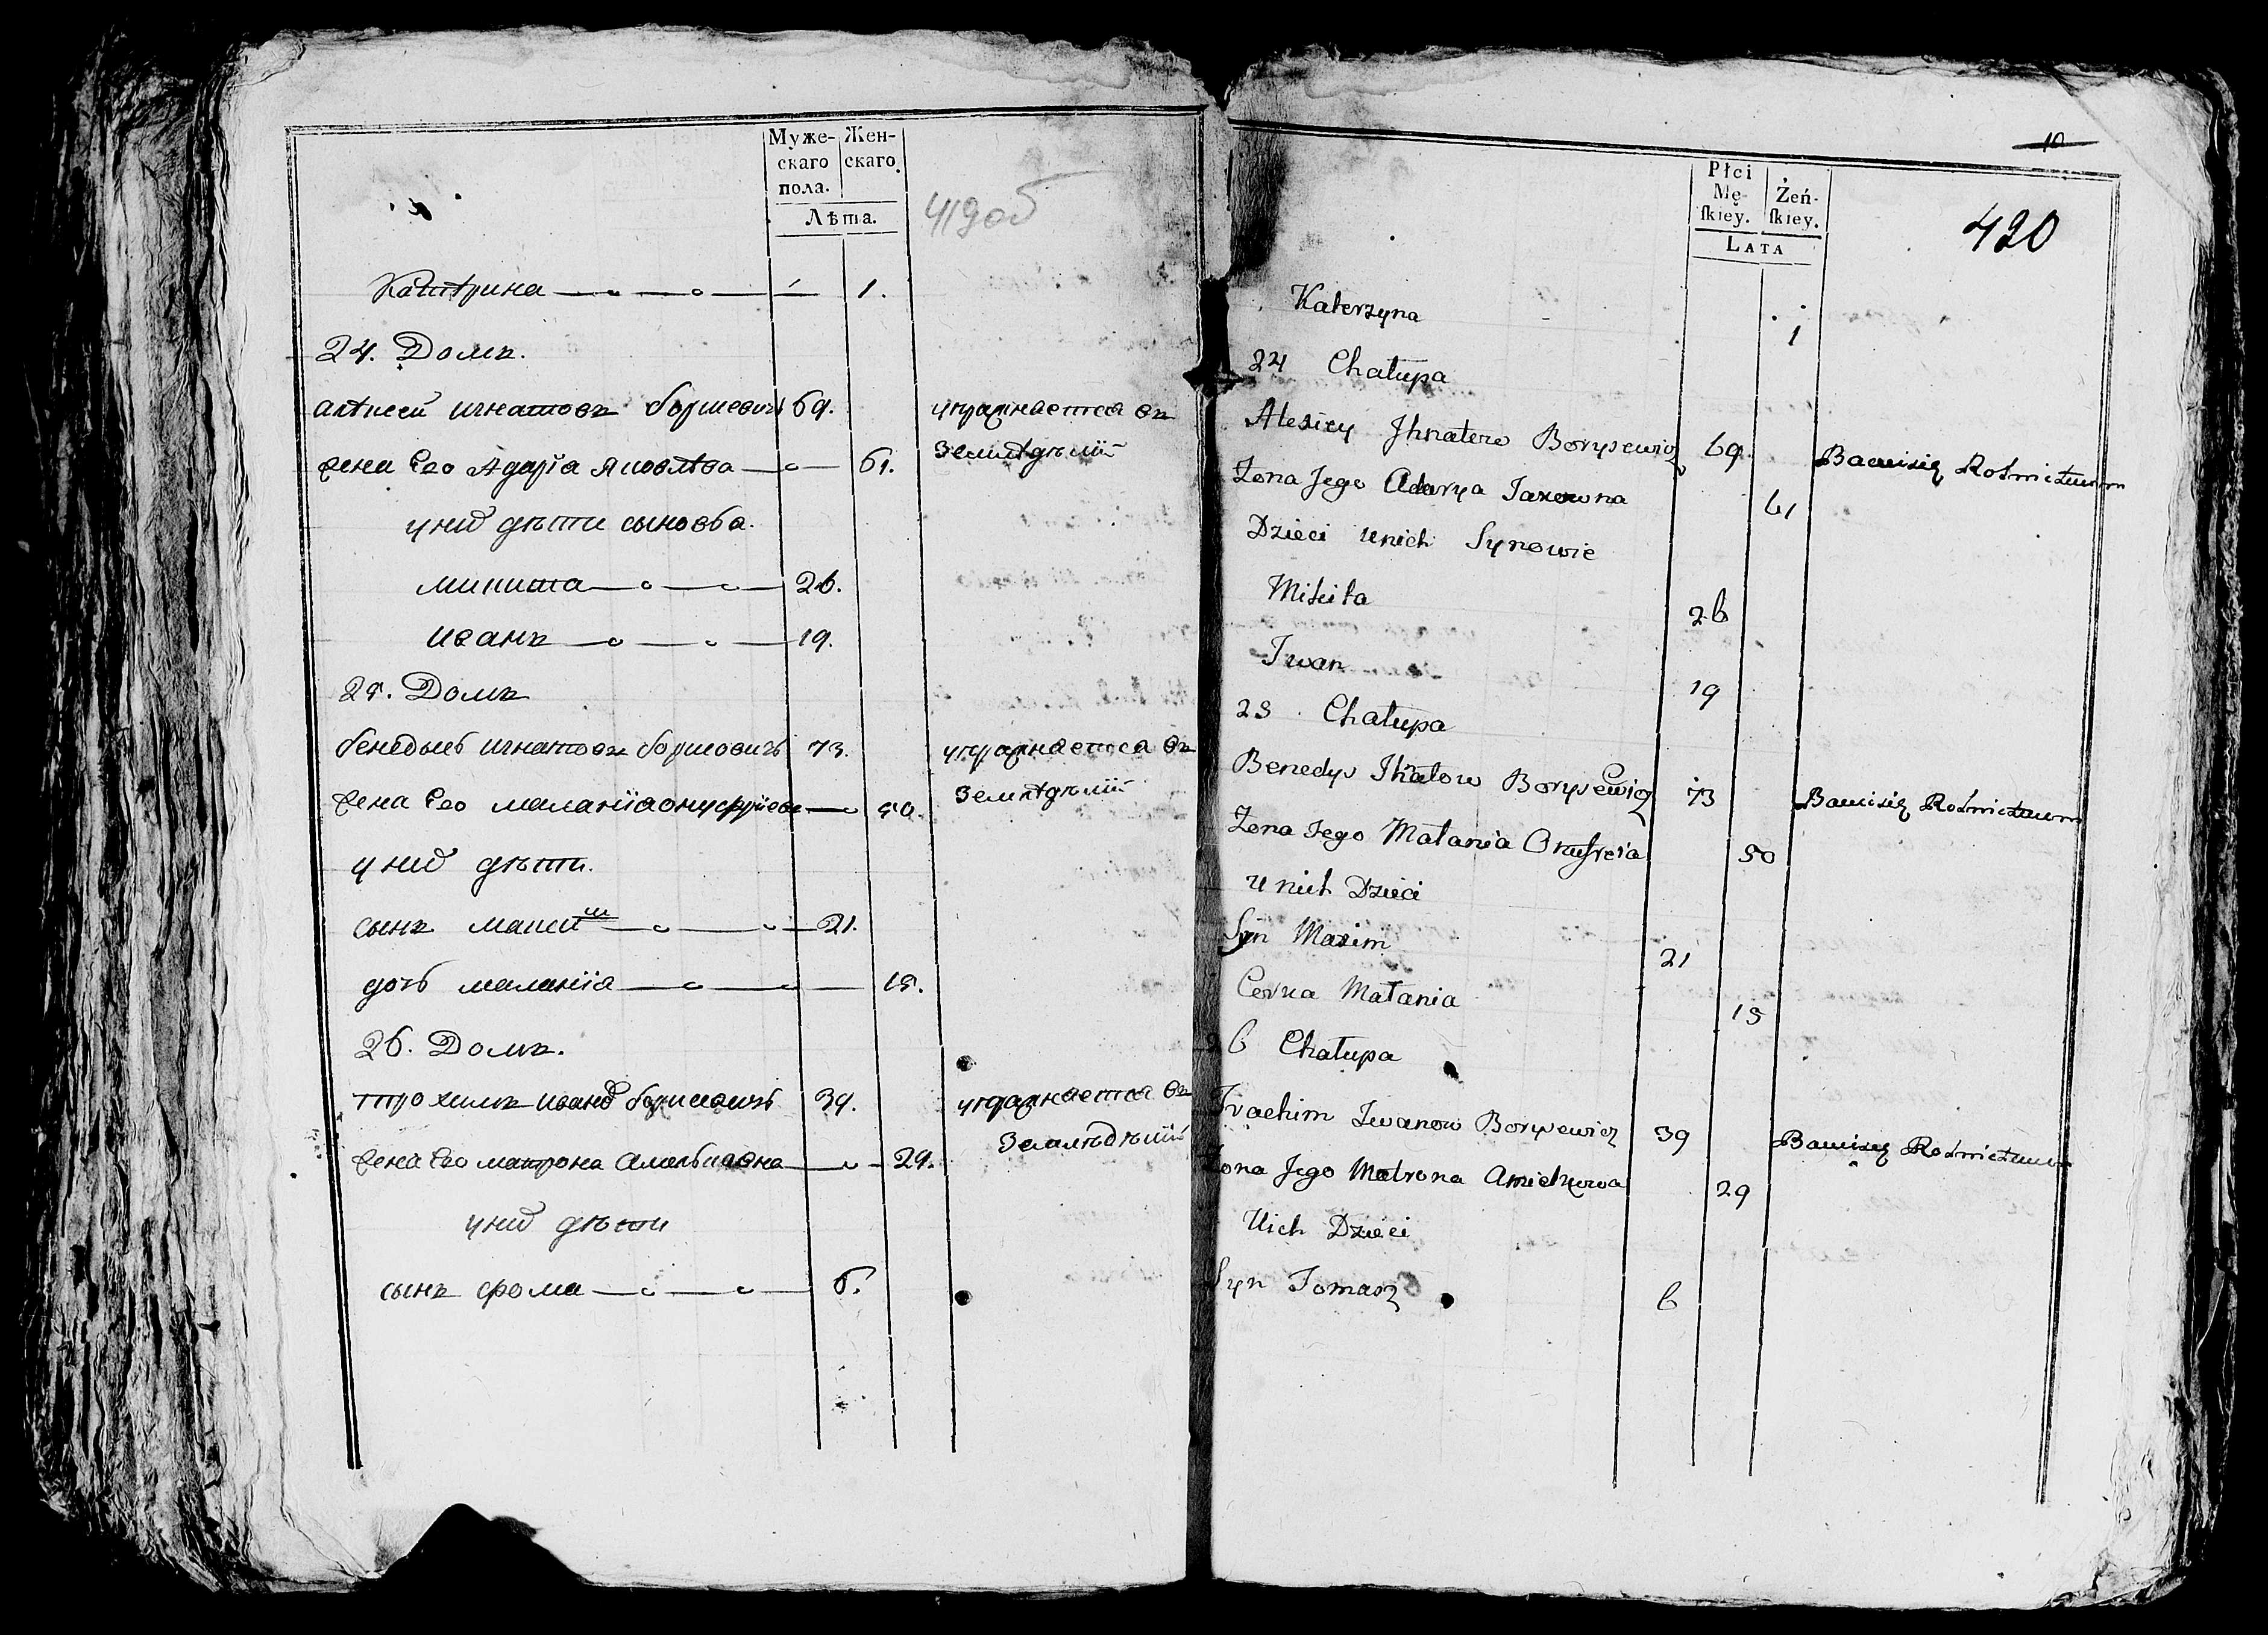 Муже-
скаго
пола.
Жен-
скаго.
Лѣта.
419 об
Катѣрина 1.
24. Домъ.
алѣксей игнатовъ борисевичъ 69. упражнается въ
жена Его Адарія Яковлѣва 61. Земледѣлій
у них дѣти сыновья.
микита 26.
иванъ 19.
25. Домъ
бенѣдысь игнатовъ борисовичъ 73. упражнается въ
жена Его маланія онуфрієва 50. Землѣдѣлій
у них дѣти.
сынъ максим 21.
дочь маланія 15.
26. Домъ.
трохимъ иванов борисевичъ 39. упражнается въ
жена Его матрона Амельяновна 29. Земледѣлій
у них дѣти
сынъ фома 6.
10
Płci
Mę-
ſkiey.
Żeń-
ſkiey.
LATA
420
Katerzyna 1
24 Chałupa
Alexiey Jhnatow Borysewicz 69 Bawisię Rolnictwem
Zona Jego Adarya Jakowna 61
Dzieci unich Synowie
Mikita 26
Iwan 19
25 Chałupa
Benedys Ihnatow Borysewicz 73 Bawisię Rolnictwem
Zona Jego Małania Onufreia 50
u nich Dzieci
Syn Maxim 21
Corka Małania 15
26 Chałupa
Trachim Iwanow Borysewicz 39 Bawisię Rolnictwem
Zona Jego Matrona 29
Uich Dzieci
Syn Tomasz 6